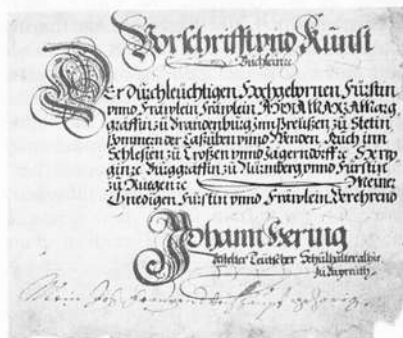 Vorschrifft vnd Kunst
Büchlein ꝛc
Der Durchleuchtigen Hochgebornen Fürstin
vnnd Fräwlein Fräwlein Marg
graffin zu Brandenburg inn Preüßen zu Stetin
Pommern der Caßüben vnnd Wenden Auch inn
Schlesien zu Croßen vnnd Jägerndorff ꝛc Hertzo
gin ꝛc Burggräffin zu Nürmberg vnnd Fürstin
zu Ruegen ꝛc Meiner
Gnedigen Fürstin vnnd Fräwlein Verehrend
Johann Hering
Teutscher Schulhalter alhie
zu Bayreuth